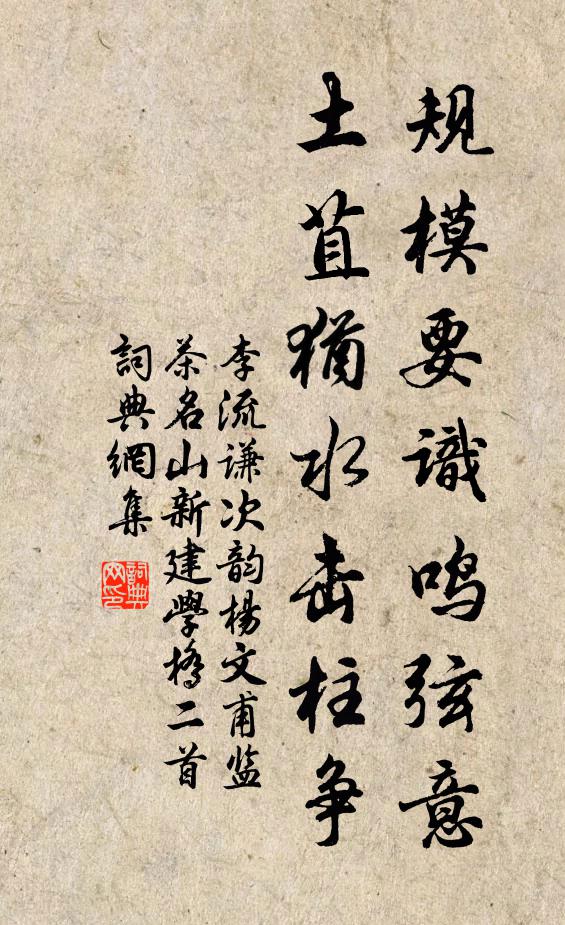 规模要識鸣弦意
土苴猶水击柱争
李流谦次韵楊文甫监
茶名山新建學橋二首
詞典網集
詞典
网印